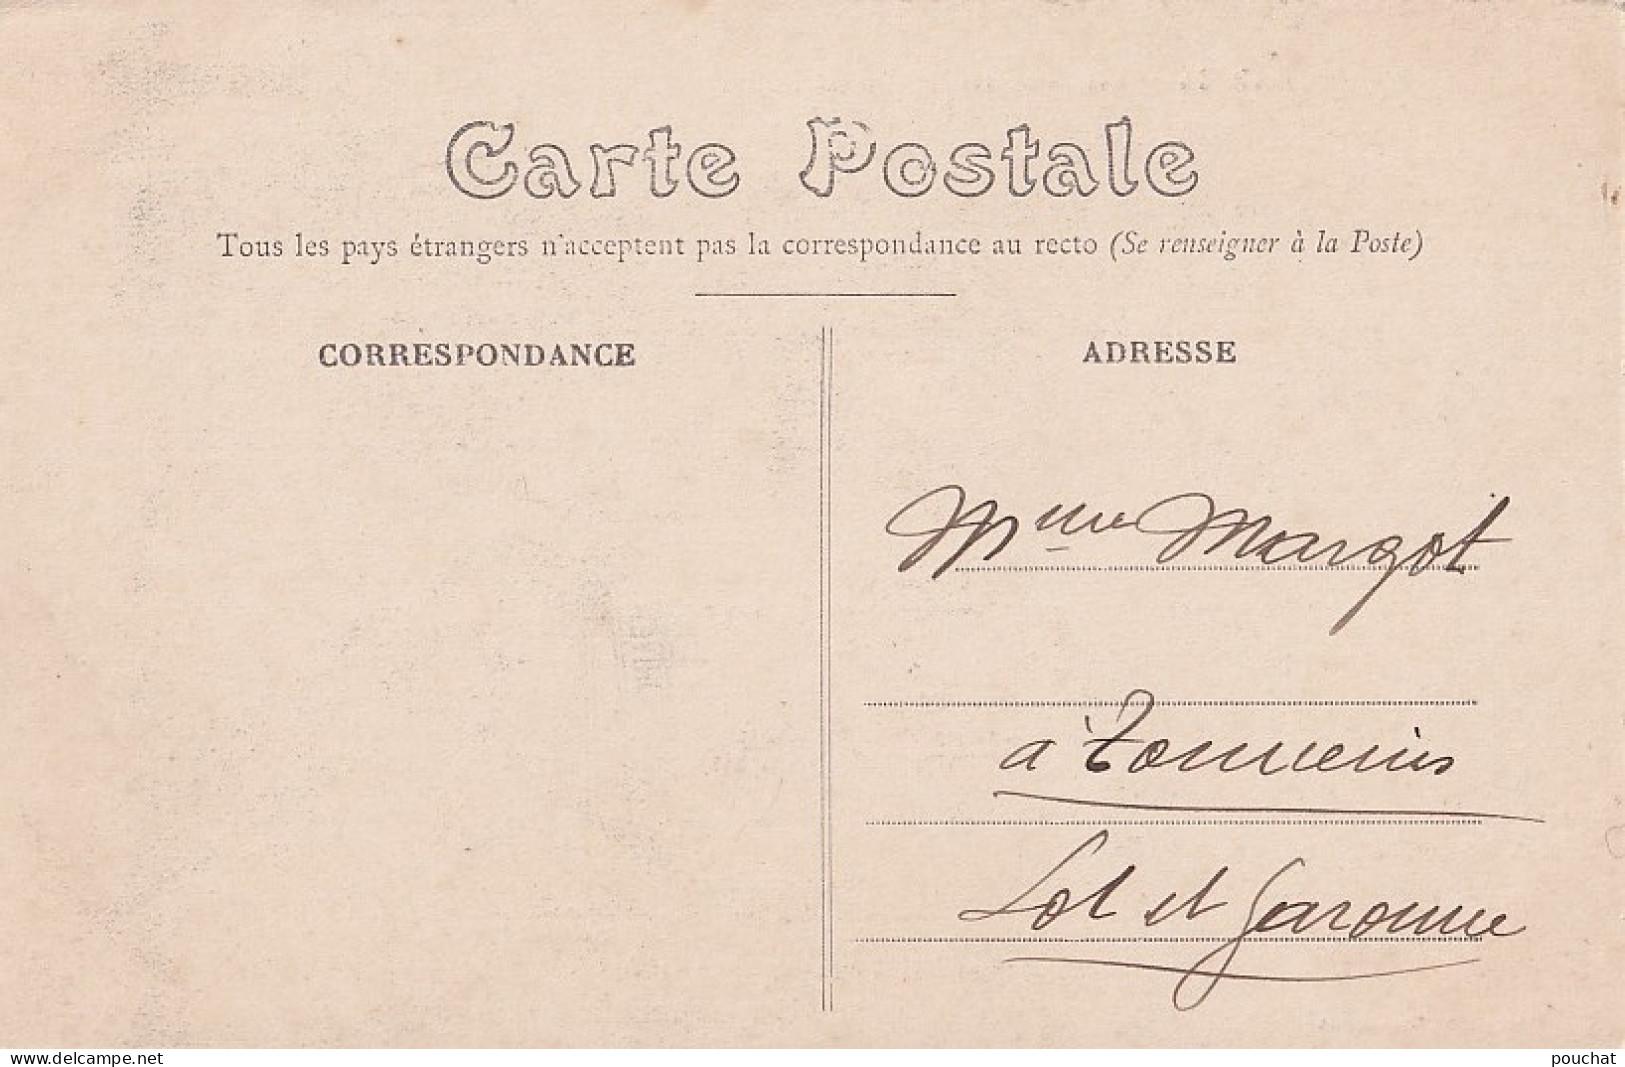 Carte Postale
Tous les pays étrangers n'acceptent pas la correspondance au recto (Se renseigner à la Poste)
CORRESPONDANCE
ADRESSE
Mme Margot
à Tonneins
Lot et Garonne
www.delcampe.net
pouchat